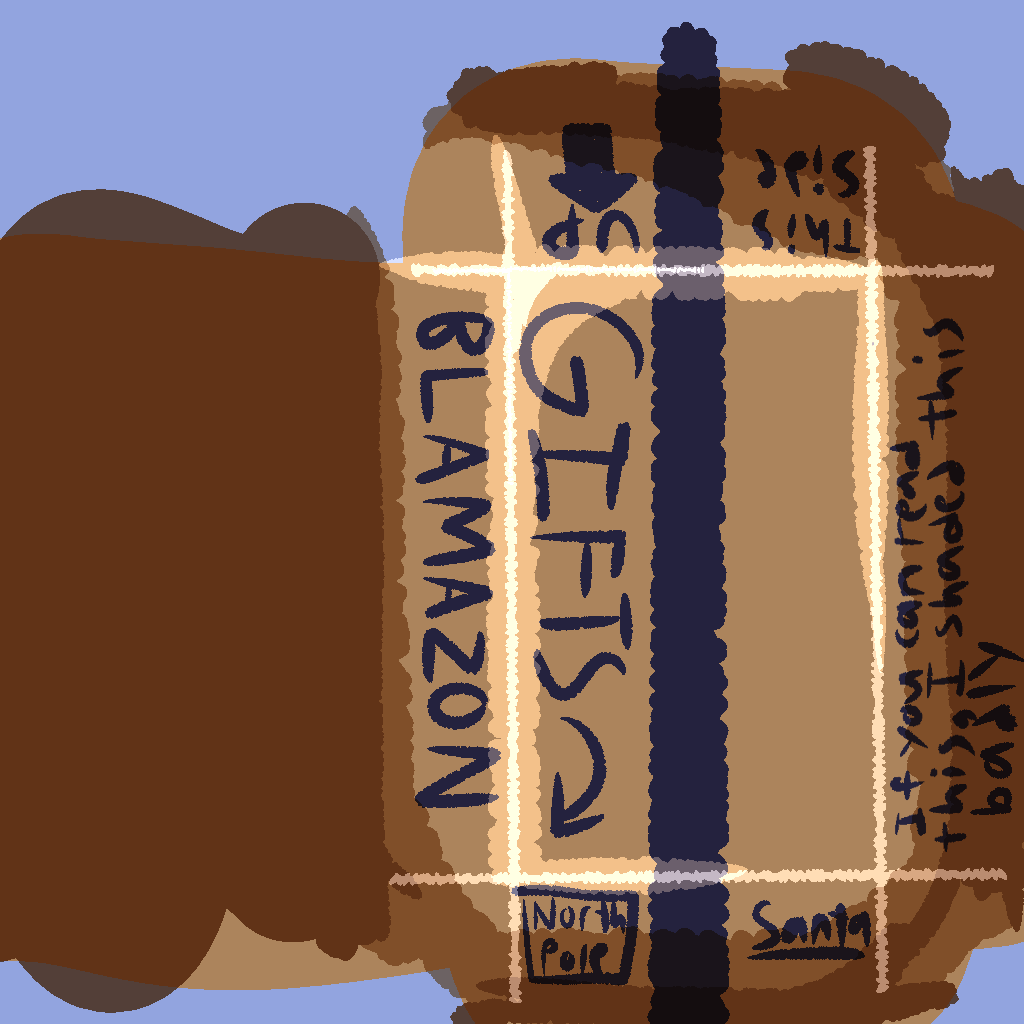 This
side
UP
BLAMAZON
GIFTS
If you can read
this, I shaded this
badly
North
Pole
Santa